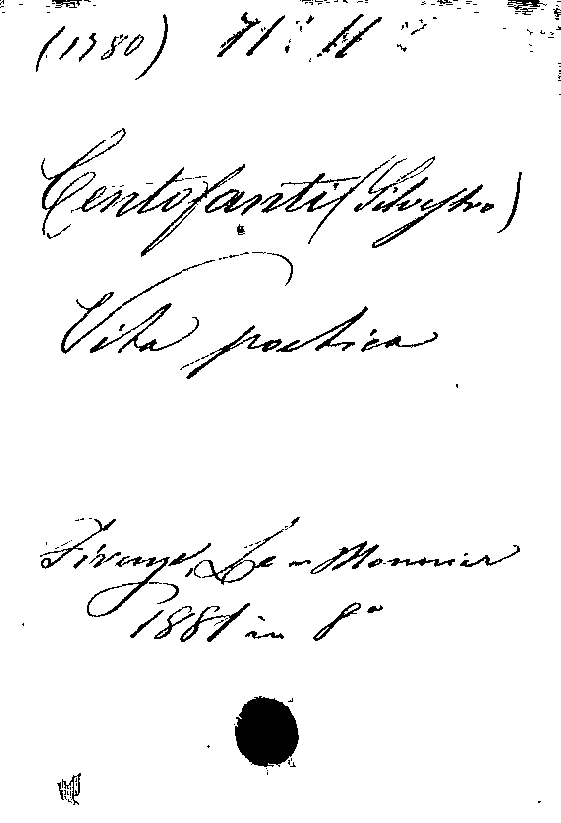 (1980) 71. H.
Centofanti (Silvestro)
Vita poetica
Firenze, Le-Monnier
1881 in 8°